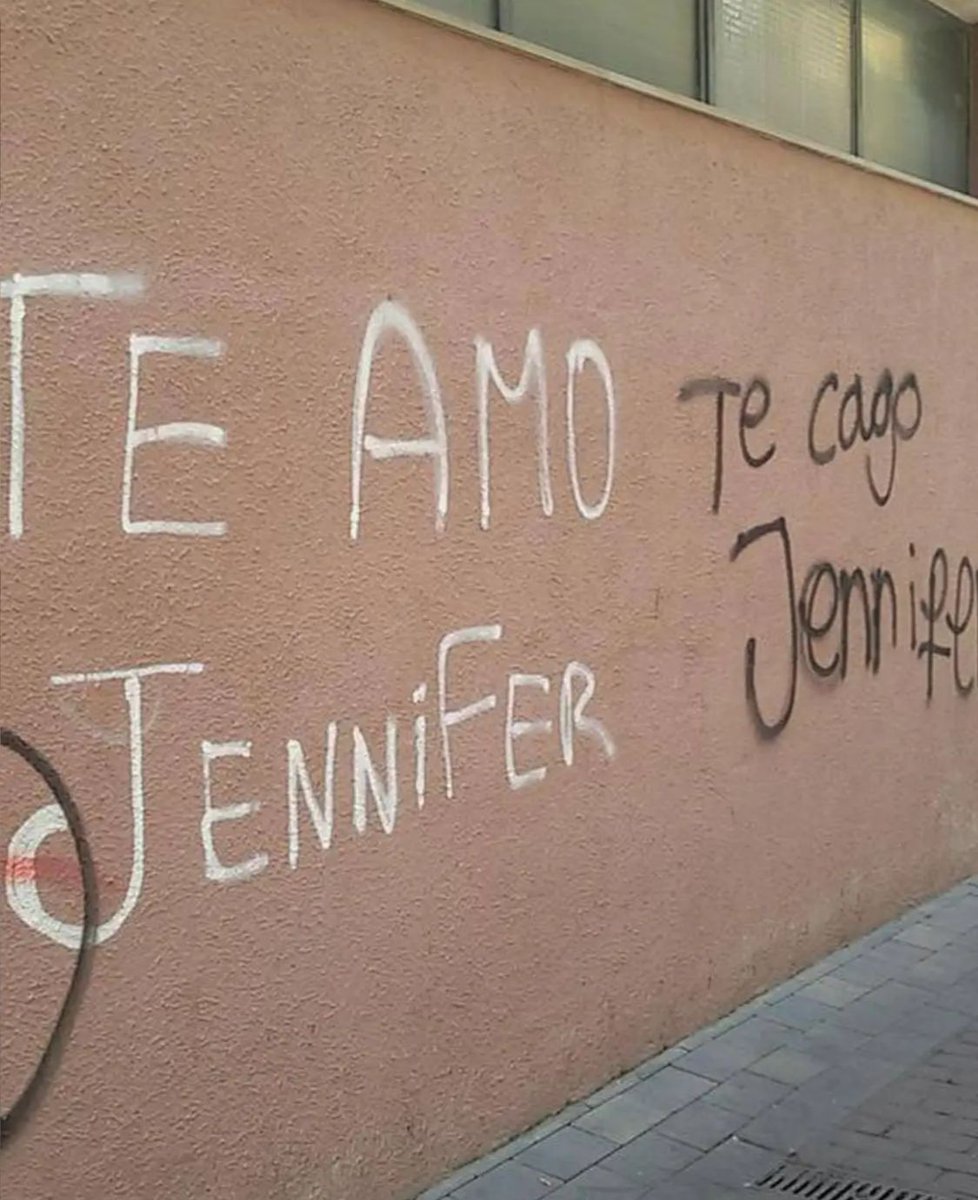 TE AMO
JENNiFER
Te cago
Jennifer